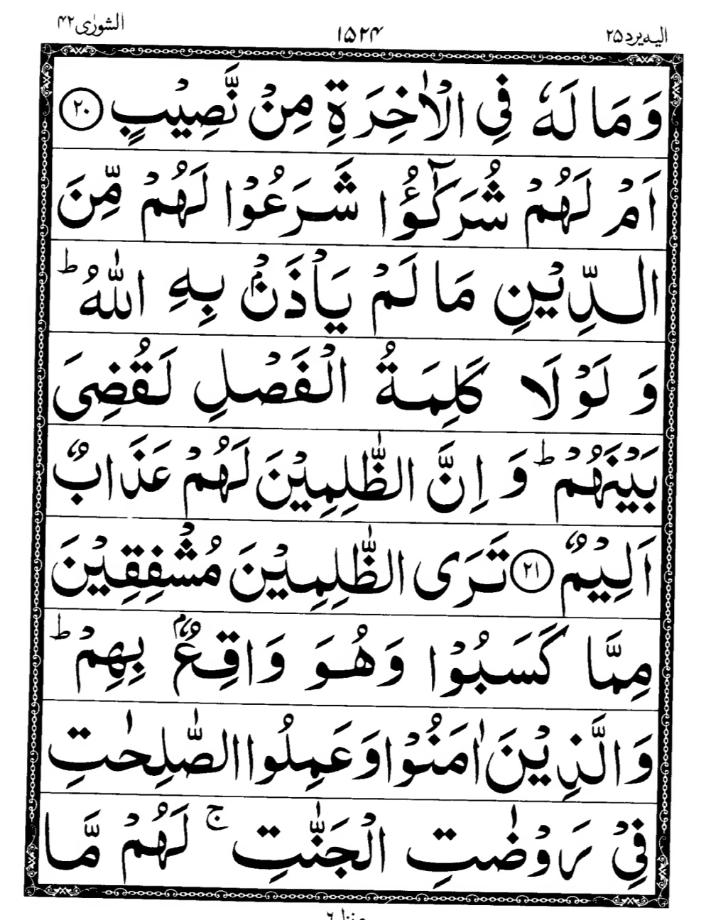 الیه یرد ۲۵ ۱۵۲۴ الشورٰی ۴۲
وَمَا لَهٗ فِی الْاٰخِرَةِ مِنْ نَّصِیْبٍ ۲۰
اَمْ لَهُمْ شُرَكٰٓؤُا شَرَعُوْا لَهُمْ مِّنَ
الدِّیْنِ مَا لَمْ یَاْذَنْۢ بِهِ اللّٰهُ ؕ
وَ لَوْلَا كَلِمَةُ الْفَصْلِ لَقُضِیَ
بَیْنَهُمْ ؕ وَ اِنَّ الظّٰلِمِیْنَ لَهُمْ عَذَابٌ
اَلِیْمٌ ۲۱ تَرَی الظّٰلِمِیْنَ مُشْفِقِیْنَ
مِمَّا كَسَبُوْا وَهُوَ وَاقِعٌۢ بِهِمْ ؕ
وَالَّذِیْنَ اٰمَنُوْا وَعَمِلُوا الصّٰلِحٰتِ
فِیْ رَوْضٰتِ الْجَنّٰتِ ۚ لَهُمْ مَّا